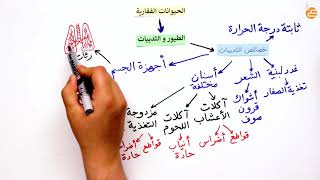 الحيوانات الفقارية
الطيور و الثدييات
ثابتة درجة الحرارة
خصائص الثدييات
أجهزة الجسم
رئات
غدد لبنية
الشعر
أسنان مختلفة
تغذية الصغار
أشواك
قرون
صوف
آكلات الأعشاب
آكلات اللحوم
مزدوجة التغذية
قواطع
أضراس
أنياب حادة
قواطع
أضراس
حادة